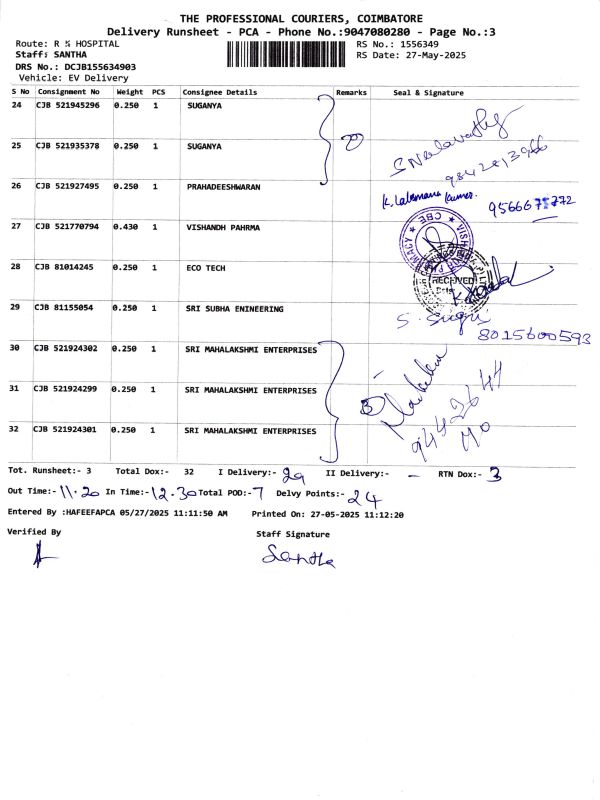 THE PROFESSIONAL COURIERS, COIMBATORE
Delivery Runsheet - PCA - Phone No.:9047080280 - Page No.:3
Route: R K HOSPITAL
RS No.: 1556349
Staff: SANTHA
RS Date: 27-May-2025
DRS No.: DCJB155634903
Vehicle: EV Delivery
S No Consignment No Weight PCS Consignee Details Remarks Seal & Signature
24 CJB 521945296 0.250 1 SUGANYA
25 CJB 521935378 0.250 1 SUGANYA
26 CJB 521927495 0.250 1 PRAHADEESHWARAN
K. Lakmana Kumar.
27 CJB 521770794 0.430 1 VISHANDH PAHRMA
28 CJB 81014245 0.250 1 ECO TECH
RECEIVED
29 CJB 81155054 0.250 1 SRI SUBHA ENINEERING
8015600593
30 CJB 521924302 0.250 1 SRI MAHALAKSHMI ENTERPRISES
31 CJB 521924299 0.250 1 SRI MAHALAKSHMI ENTERPRISES
32 CJB 521924301 0.250 1 SRI MAHALAKSHMI ENTERPRISES
Tot. Runsheet:- 3 Total Dox:- 32 I Delivery:- 29 II Delivery:- - RTN Dox:- 3
Out Time:- 11.20 In Time:- 12.30 Total POD:- 7 Delvy Points:- 24
Entered By :HAFEEFAPCA 05/27/2025 11:11:50 AM Printed On: 27-05-2025 11:12:20
Verified By
Staff Signature
Santha